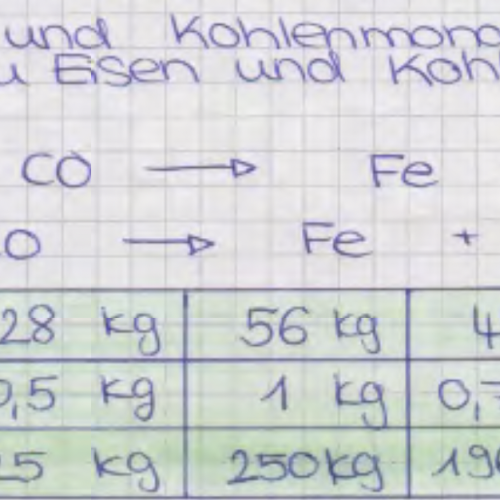 und Kohlenmono
u Eisen und Kohl
CO → Fe
O → Fe +
28 kg 56 kg 4
0,5 kg 1 kg 0,7
25 kg 250kg 196